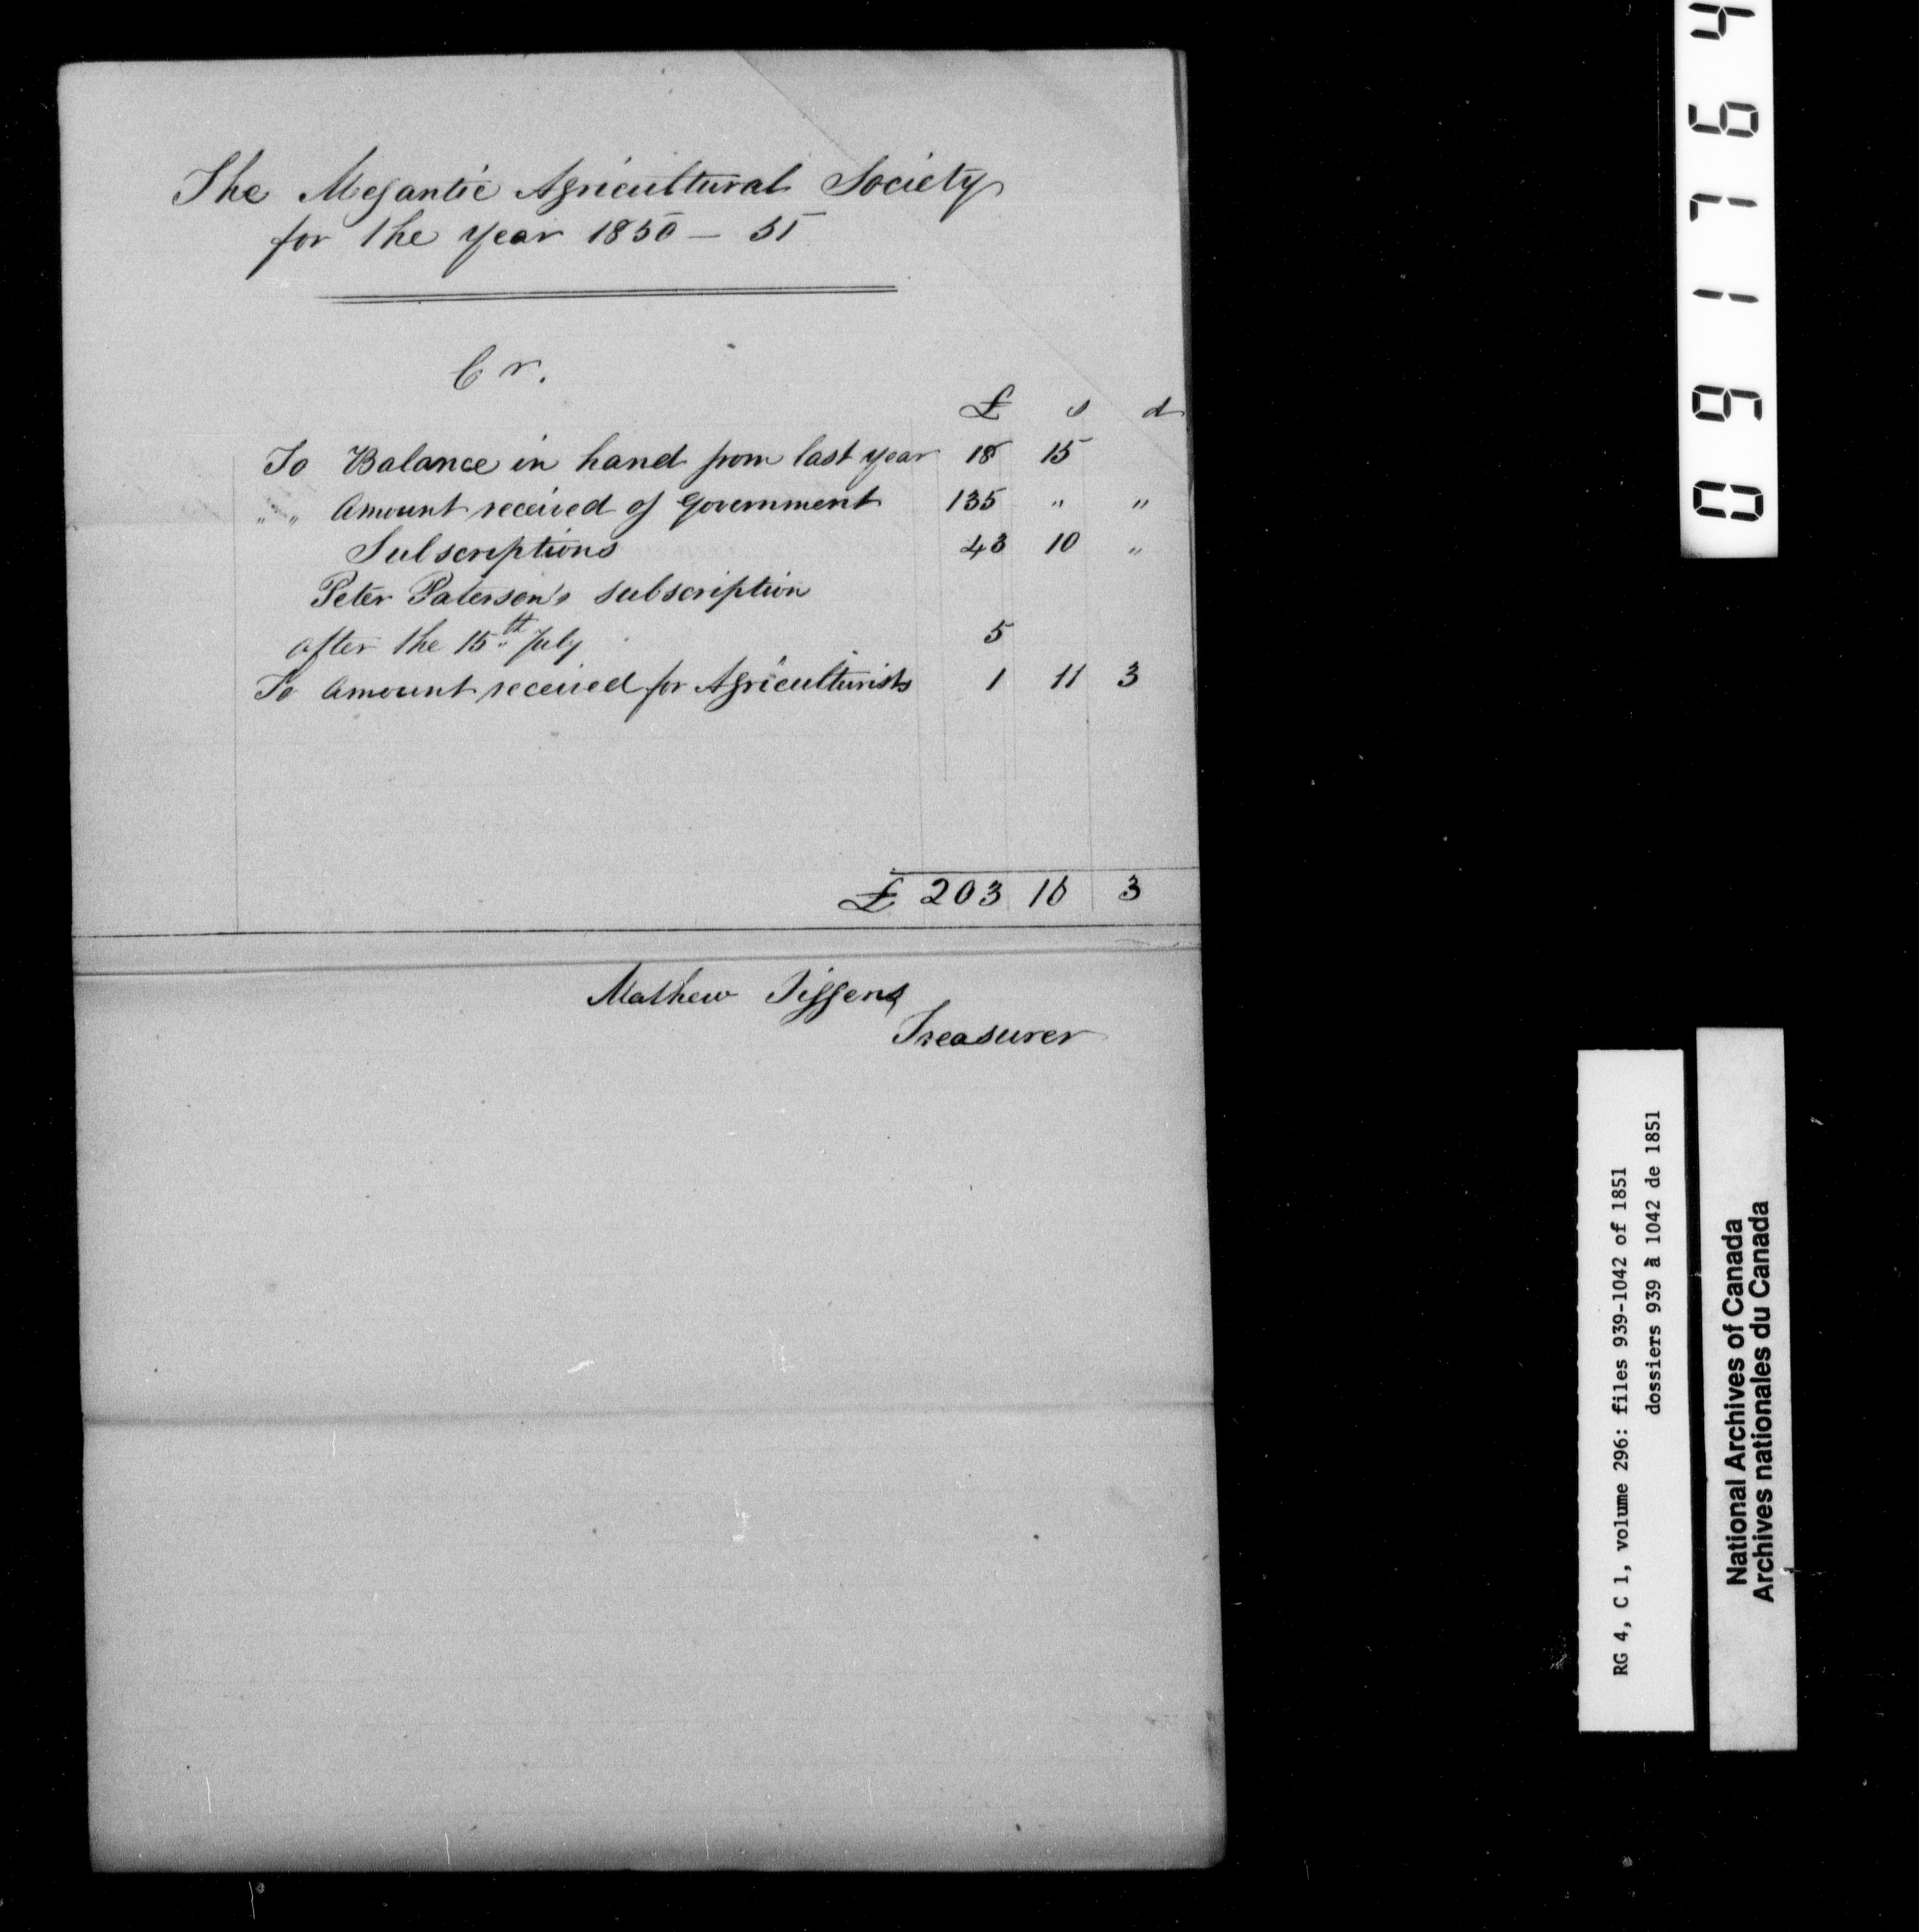 The Megantic Agricultural Society
for the year 1850 — 51
Cr.
£ s d
To Balance in hand from last year 18 15
" " Amount received of Government 135 " "
Subscriptions 43 10 "
Peter Paterson's subscription
after the 15th July 5
To Amount received for Agriculturists 1 11 3
£ 203 16 3
Mathew
Treasurer
091764
RG 4, C 1, volume 296: files 939-1042 of 1851
dossiers 939 à 1042 de 1851
National Archives of Canada
Archives nationales du Canada